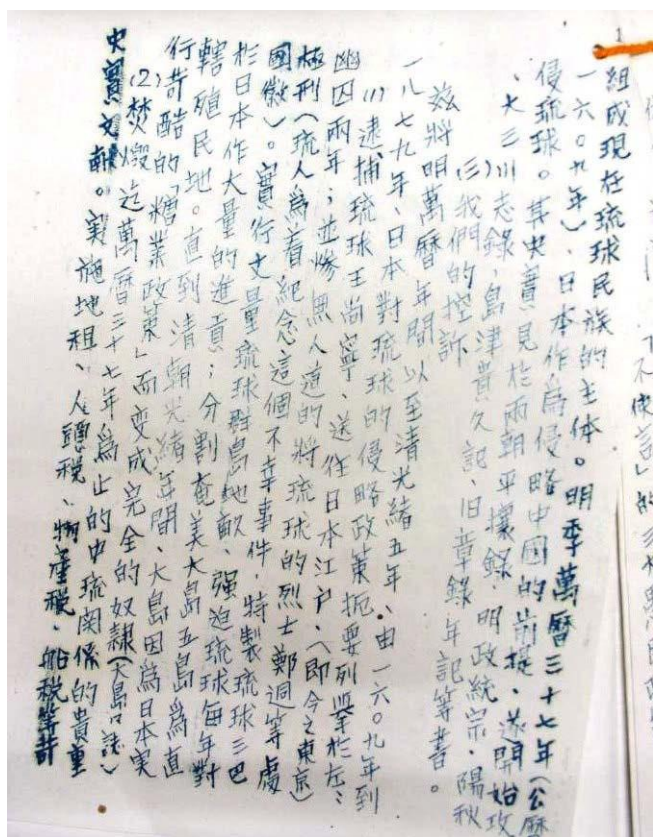 組成現在琉球民族的主体。明季萬曆三十七年(公曆
一六〇九年)、日本作為侵略中國的前提、遂開始攻
侵琉球。其史實見於兩朝平攘錄、明政統宗、陽秋
、大三川志錄、島津貴久記、旧章錄、年記等書。
(三)我們的控訴
茲將明萬曆年間以至清光緒五年、由一六〇九年到
一八七九年、日本對琉球的侵略政策扼要列舉於左:
(1)逮捕琉球王尚寧、送往日本江戶、(即今之東京)
幽囚兩年;並慘無人道的將琉球的烈士鄭迵等處
極刑(琉人為着紀念這個不幸事件,特製琉球三巴
國徽)。實行丈量琉球群島地畝、强迫琉球每年對
於日本作大量的進貢;分割奄美大島五島為直
轄殖民地。直到清朝光緒年間、大島因為日本実
行苛酷的「糖業政策」而变成完全的奴隷(大島口誌)
(2)焚燬迄萬曆三十七年為止的中琉関係的貴重
史實文献。実施地租、人頭税、物產税、船税等計